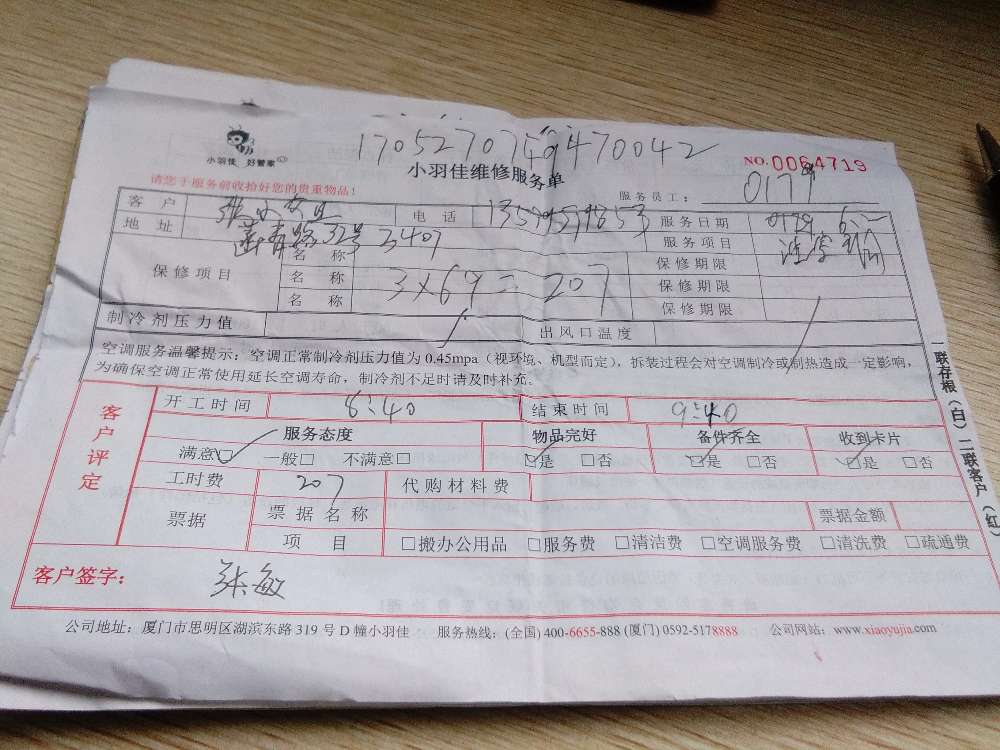 1705270749470042
小羽佳 好管家
小羽佳维修服务单
NO.0064719
请您于服务前收拾好您的贵重物品!
服务员工: 0177
客 户 电 话 服务日期
地 址 32号 3407 服务项目
保修项目 名 称 保修期限
名 称 3×69=207 保修期限
名 称 保修期限
制冷剂压力值 出风口温度
空调服务温馨提示:空调正常制冷剂压力值为 0.45mpa(视环境、机型而定),拆装过程会对空调制冷或制热造成一定影响,
为确保空调正常使用延长空调寿命,制冷剂不足时请及时补充。
客户评定
开工时间 8:40 结束时间 9:40
服务态度 物品完好 备件齐全 收到卡片
满意□ 一般□ 不满意□ □是 □否 □是 □否 □是 □否
工时费 207 代购材料费
票据 票据名称 票据金额
项 目 □搬办公用品 □服务费 □清洁费 □空调服务费 □清洗费 □疏通费
客户签字: 张敏
一联存根(白)二联客户(红)
公司地址:厦门市思明区湖滨东路 319 号 D 幢小羽佳 服务热线:(全国) 400-6655-888 (厦门) 0592-5178888 公司网站:www.xiaoyujia.com